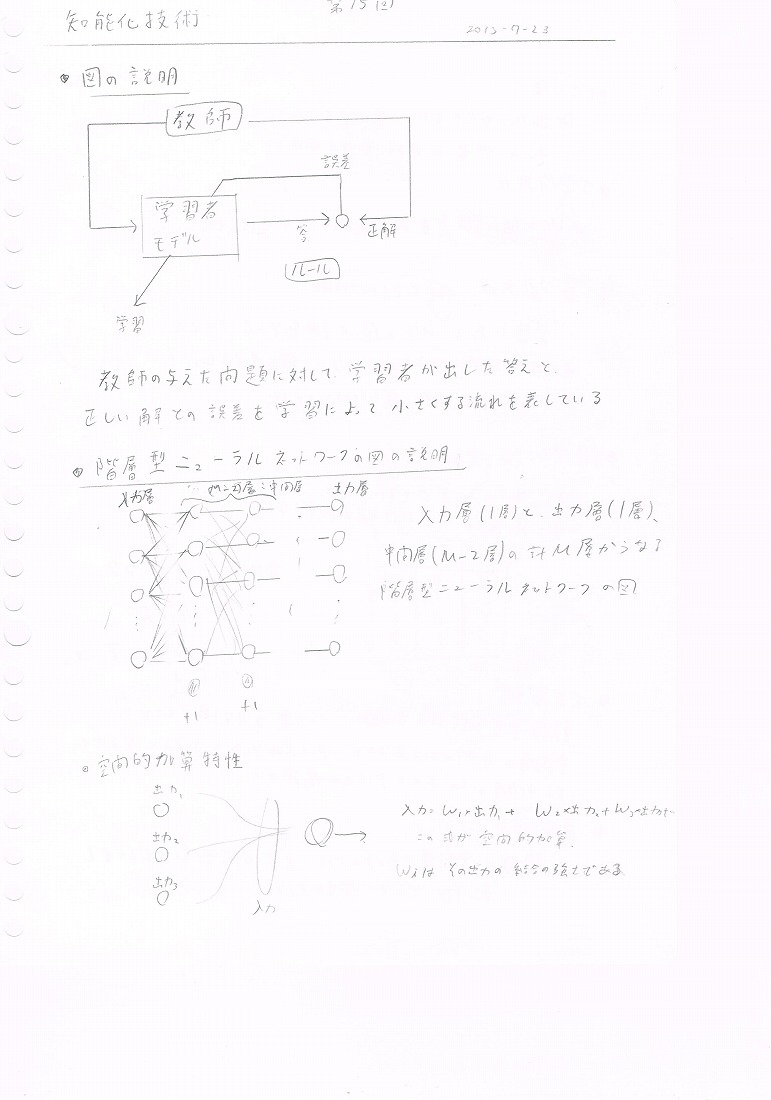 知能化技術
第15回
2013-7-23
図の説明
教師
誤差
学習者
モデル
答
正解
ルール
学習
教師の与えた問題に対して、学習者が出した答えと、
正しい解との誤差を学習によって小さくする流れを表している
階層型ニューラルネットワークの図の説明
入力層
M-2層:中間層
出力層
入力層(1層)と、出力層(1層)、
中間層(M-2層)の計M層からなる
階層型ニューラルネットワークの図
+1
+1
空間的加算特性
出力1
出力2
出力3
入力
入力=W1×出力1+ W2×出力2+W3×出力3
この式が空間的加算
Wiはその出力の結合の強さである